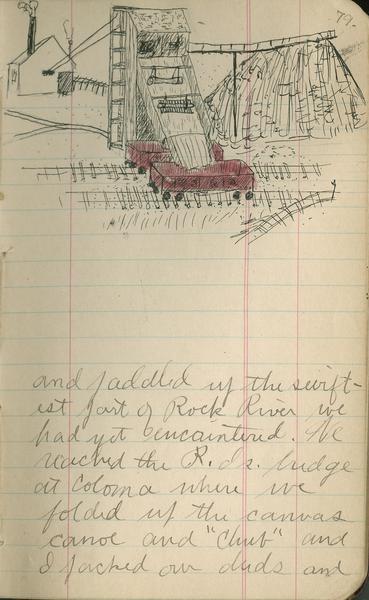 79.
and paddled up the swift-
est part of Rock River we
had yet encountered. We
reached the R. I's. bridge
at Coloma where we
folded up the canvas
canoe and "Chub" and
I packed our duds and